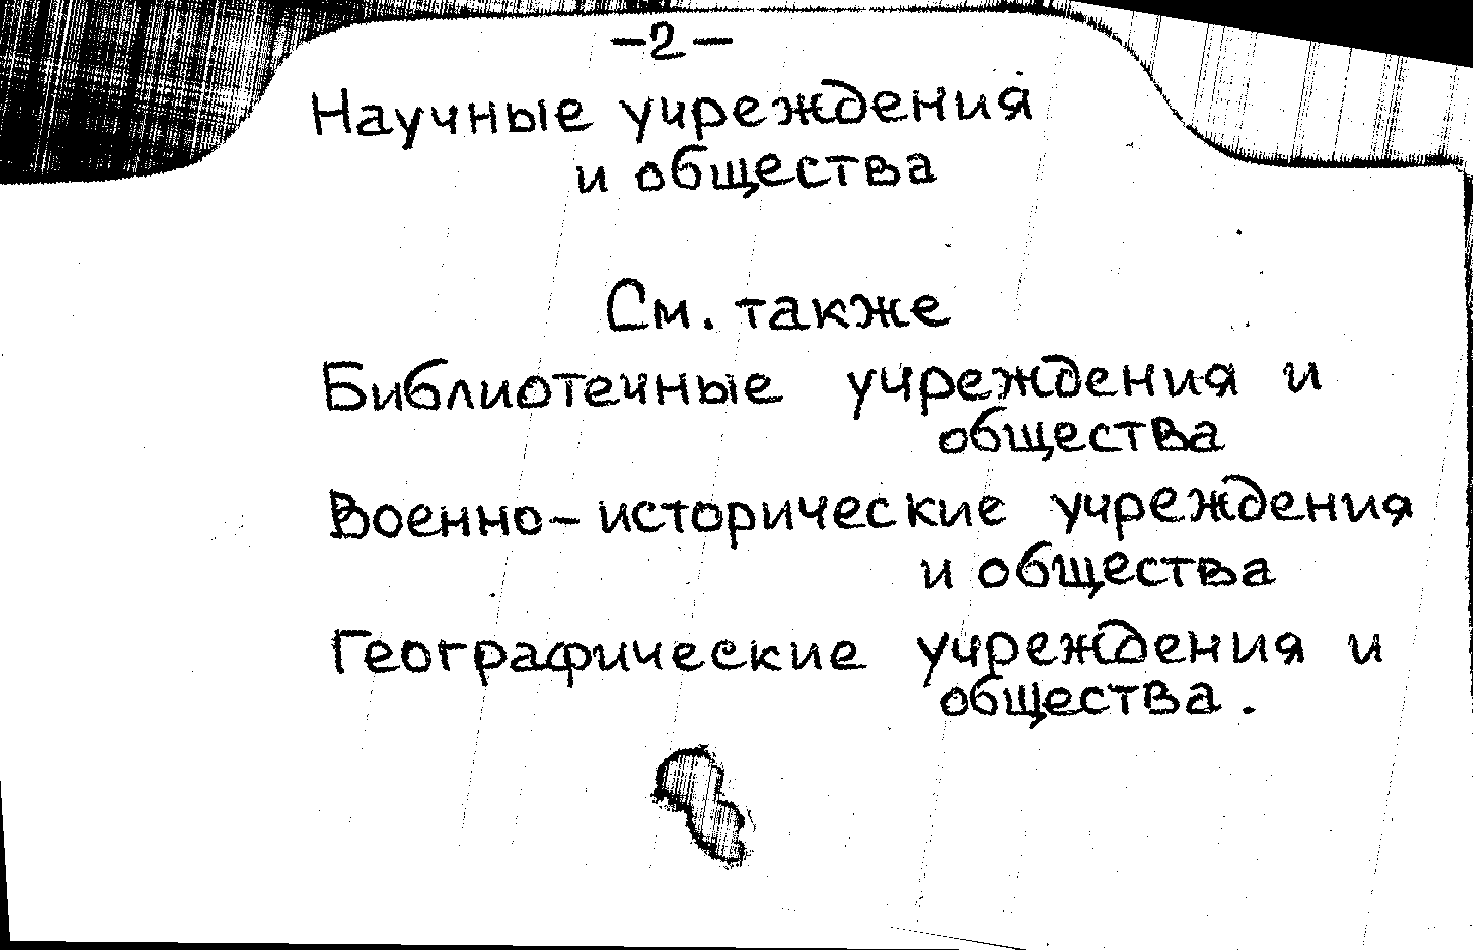 -2-
Научные учреждения
и общества
См. также
Библиотечные учреждения и
общества
Военно-исторические учреждения
и общества
Географические учреждения и
общества.